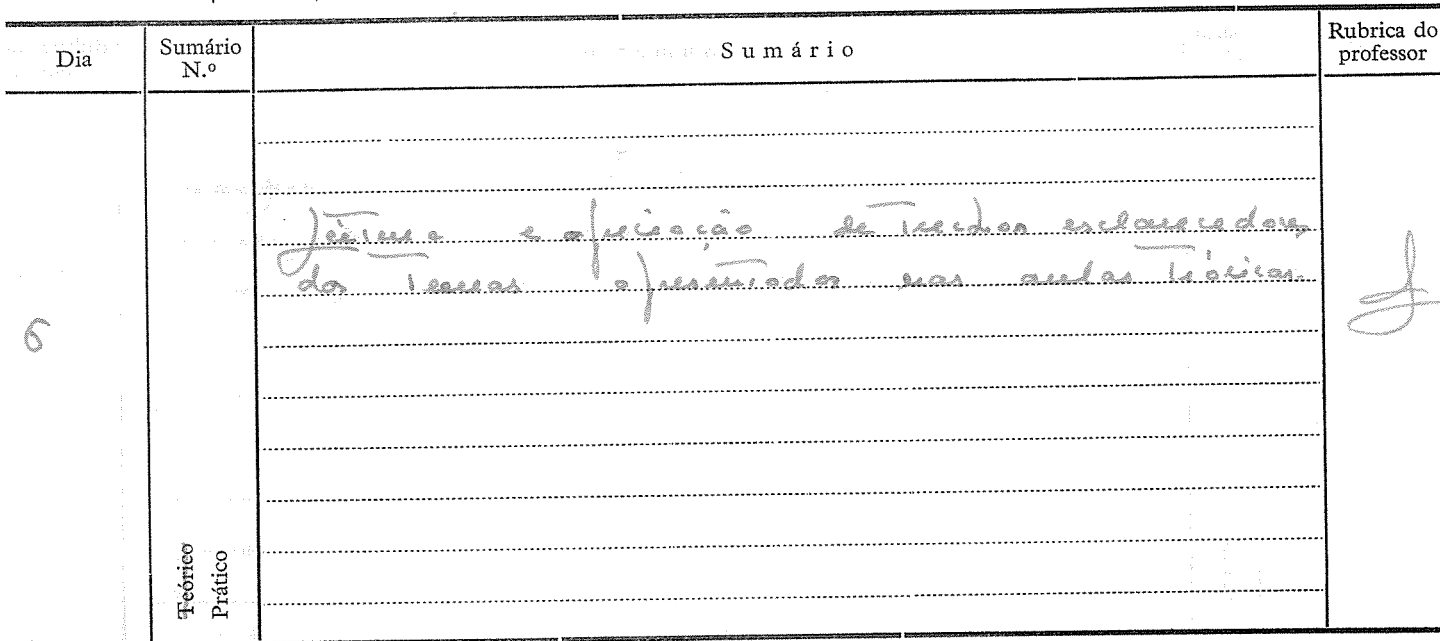 Dia
Sumário N.º
Sumário
Rubrica do professor
Leitura e apreciação de trechos esclarecedores
dos temas apresentados nas aulas teóricas.
6
Teórico
Prático